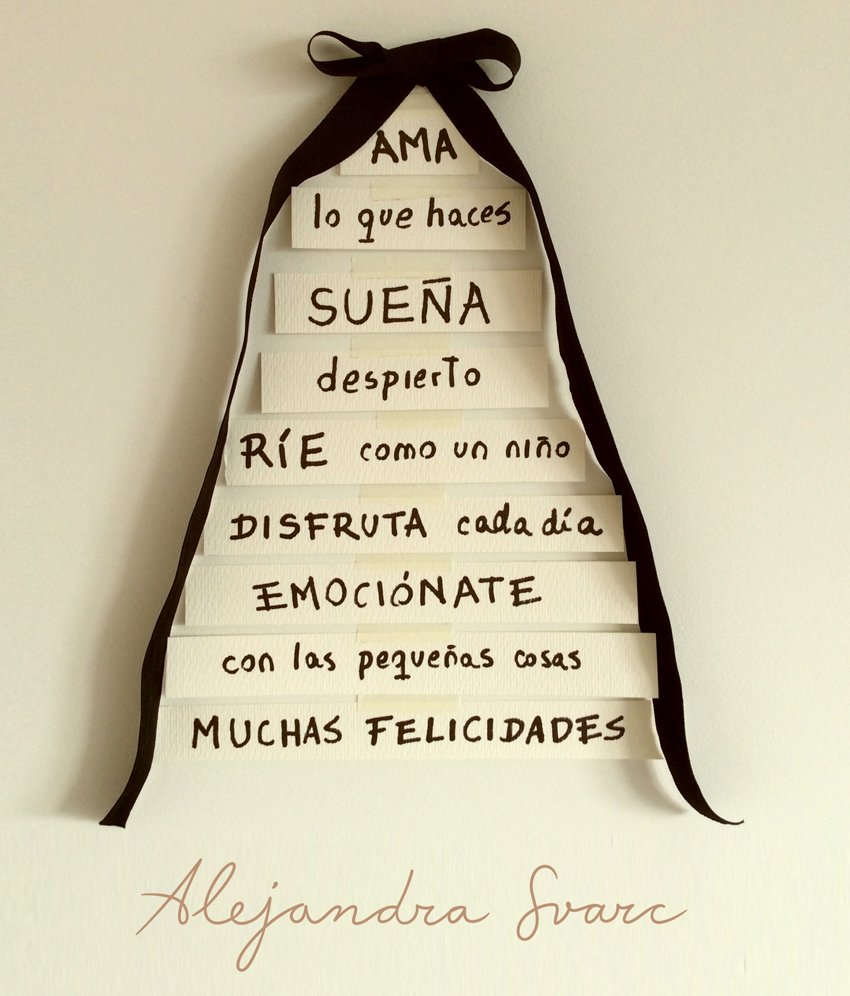 AMA
lo que haces
SUEÑA
despierto
RÍE como un niño
DISFRUTA cada día
EMOCIÓNATE
con las pequeñas cosas
MUCHAS FELICIDADES
Alejandra Svarc